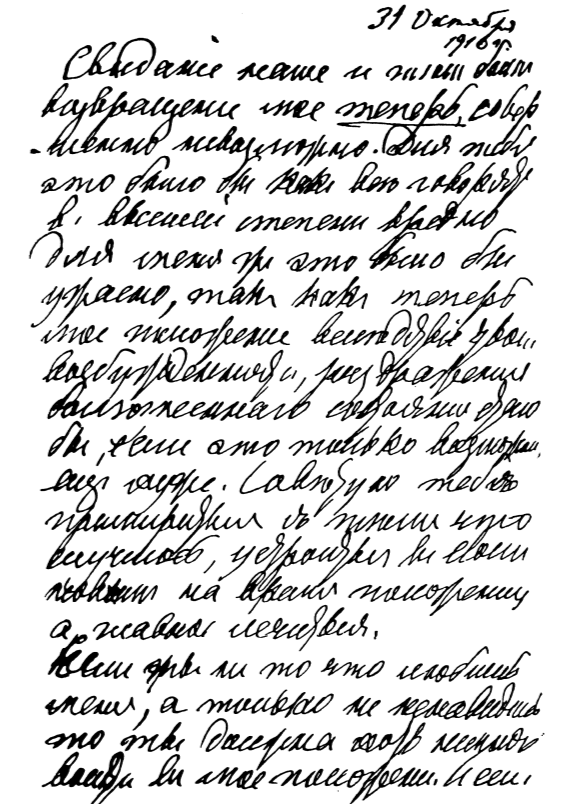 31 Октября
1910 г.
Свиданіе наше и тѣмъ болѣе
возвращеніе мое теперь, совер
-шенно невозможно. Для тебя
это было бы какъ всѣ говорятъ
въ высшей степени вредно
для меня же это было бы
ужасно, такъ какъ теперь
мое положеніе вслѣдствіе твоей
возбужденности, раздраженія
болѣзненнаго состоянія стало
бы, если это только возможно,
еще хуже. Совѣтую тебѣ
примириться съ тѣмъ что
случилось, устроиться въ своемъ
новомъ на время положеніи
а главное лечиться.
Если ты не то что любишь
меня, а только не ненавидишь
то ты должна хоть немного
войти въ мое положеніе. И если